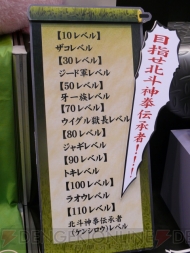 目指せ北斗神拳伝承者!!!
【10レベル】
ザコレベル
【30レベル】
ジード軍レベル
【50レベル】
牙一族レベル
【70レベル】
ウイグル獄長レベル
【80レベル】
ジャギレベル
【90レベル】
トキレベル
【100レベル】
ラオウレベル
【110レベル】
北斗神拳伝承者
(ケンシロウ)レベル